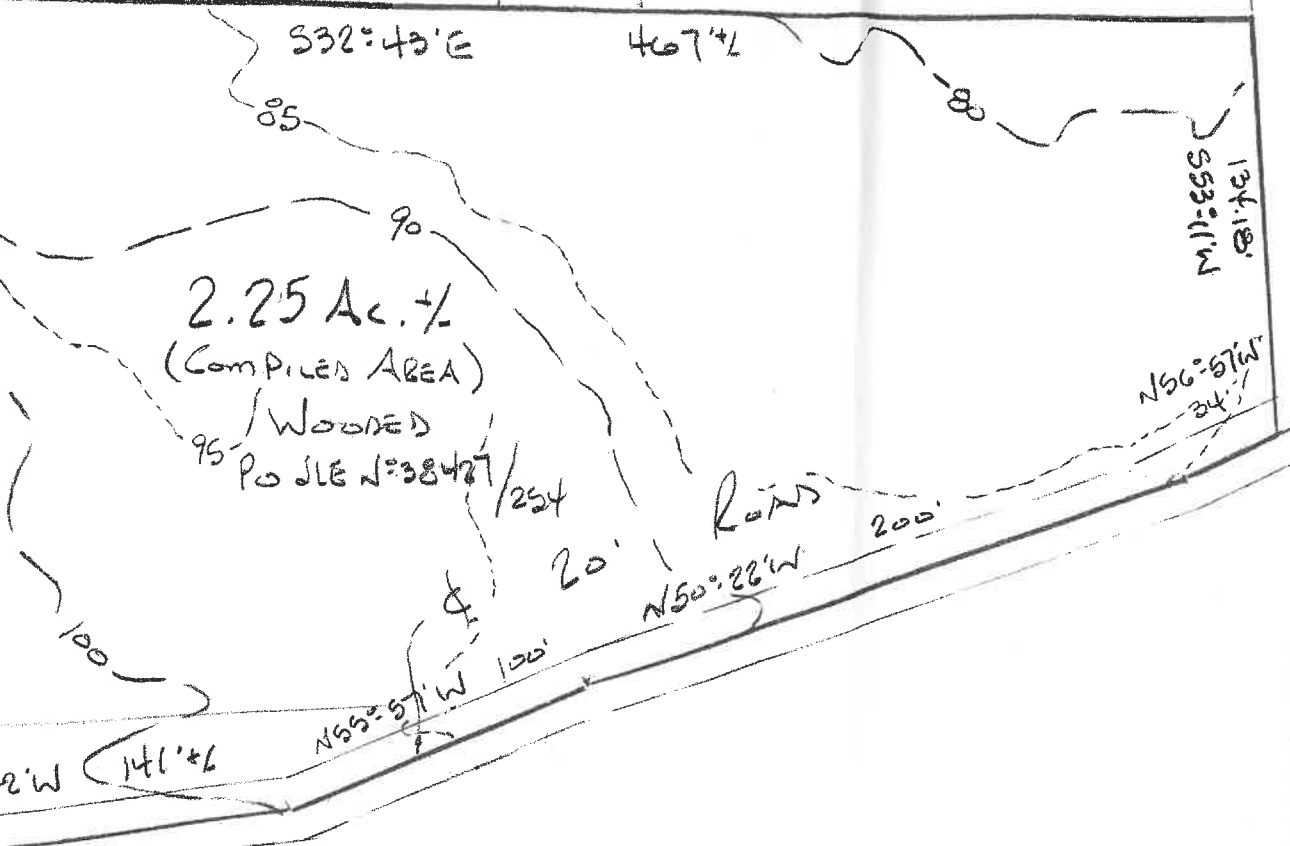 S32°43'E
467'±
85
80
134.18'
S53°11'W
90
2.25 Ac. ±
(COMPILED AREA)
WOODED
95
N°38427/254
N56°57'W
34'
ROAD
20'
200'
N50°22'W
100
100'
N55°57'W
2'W
141'±